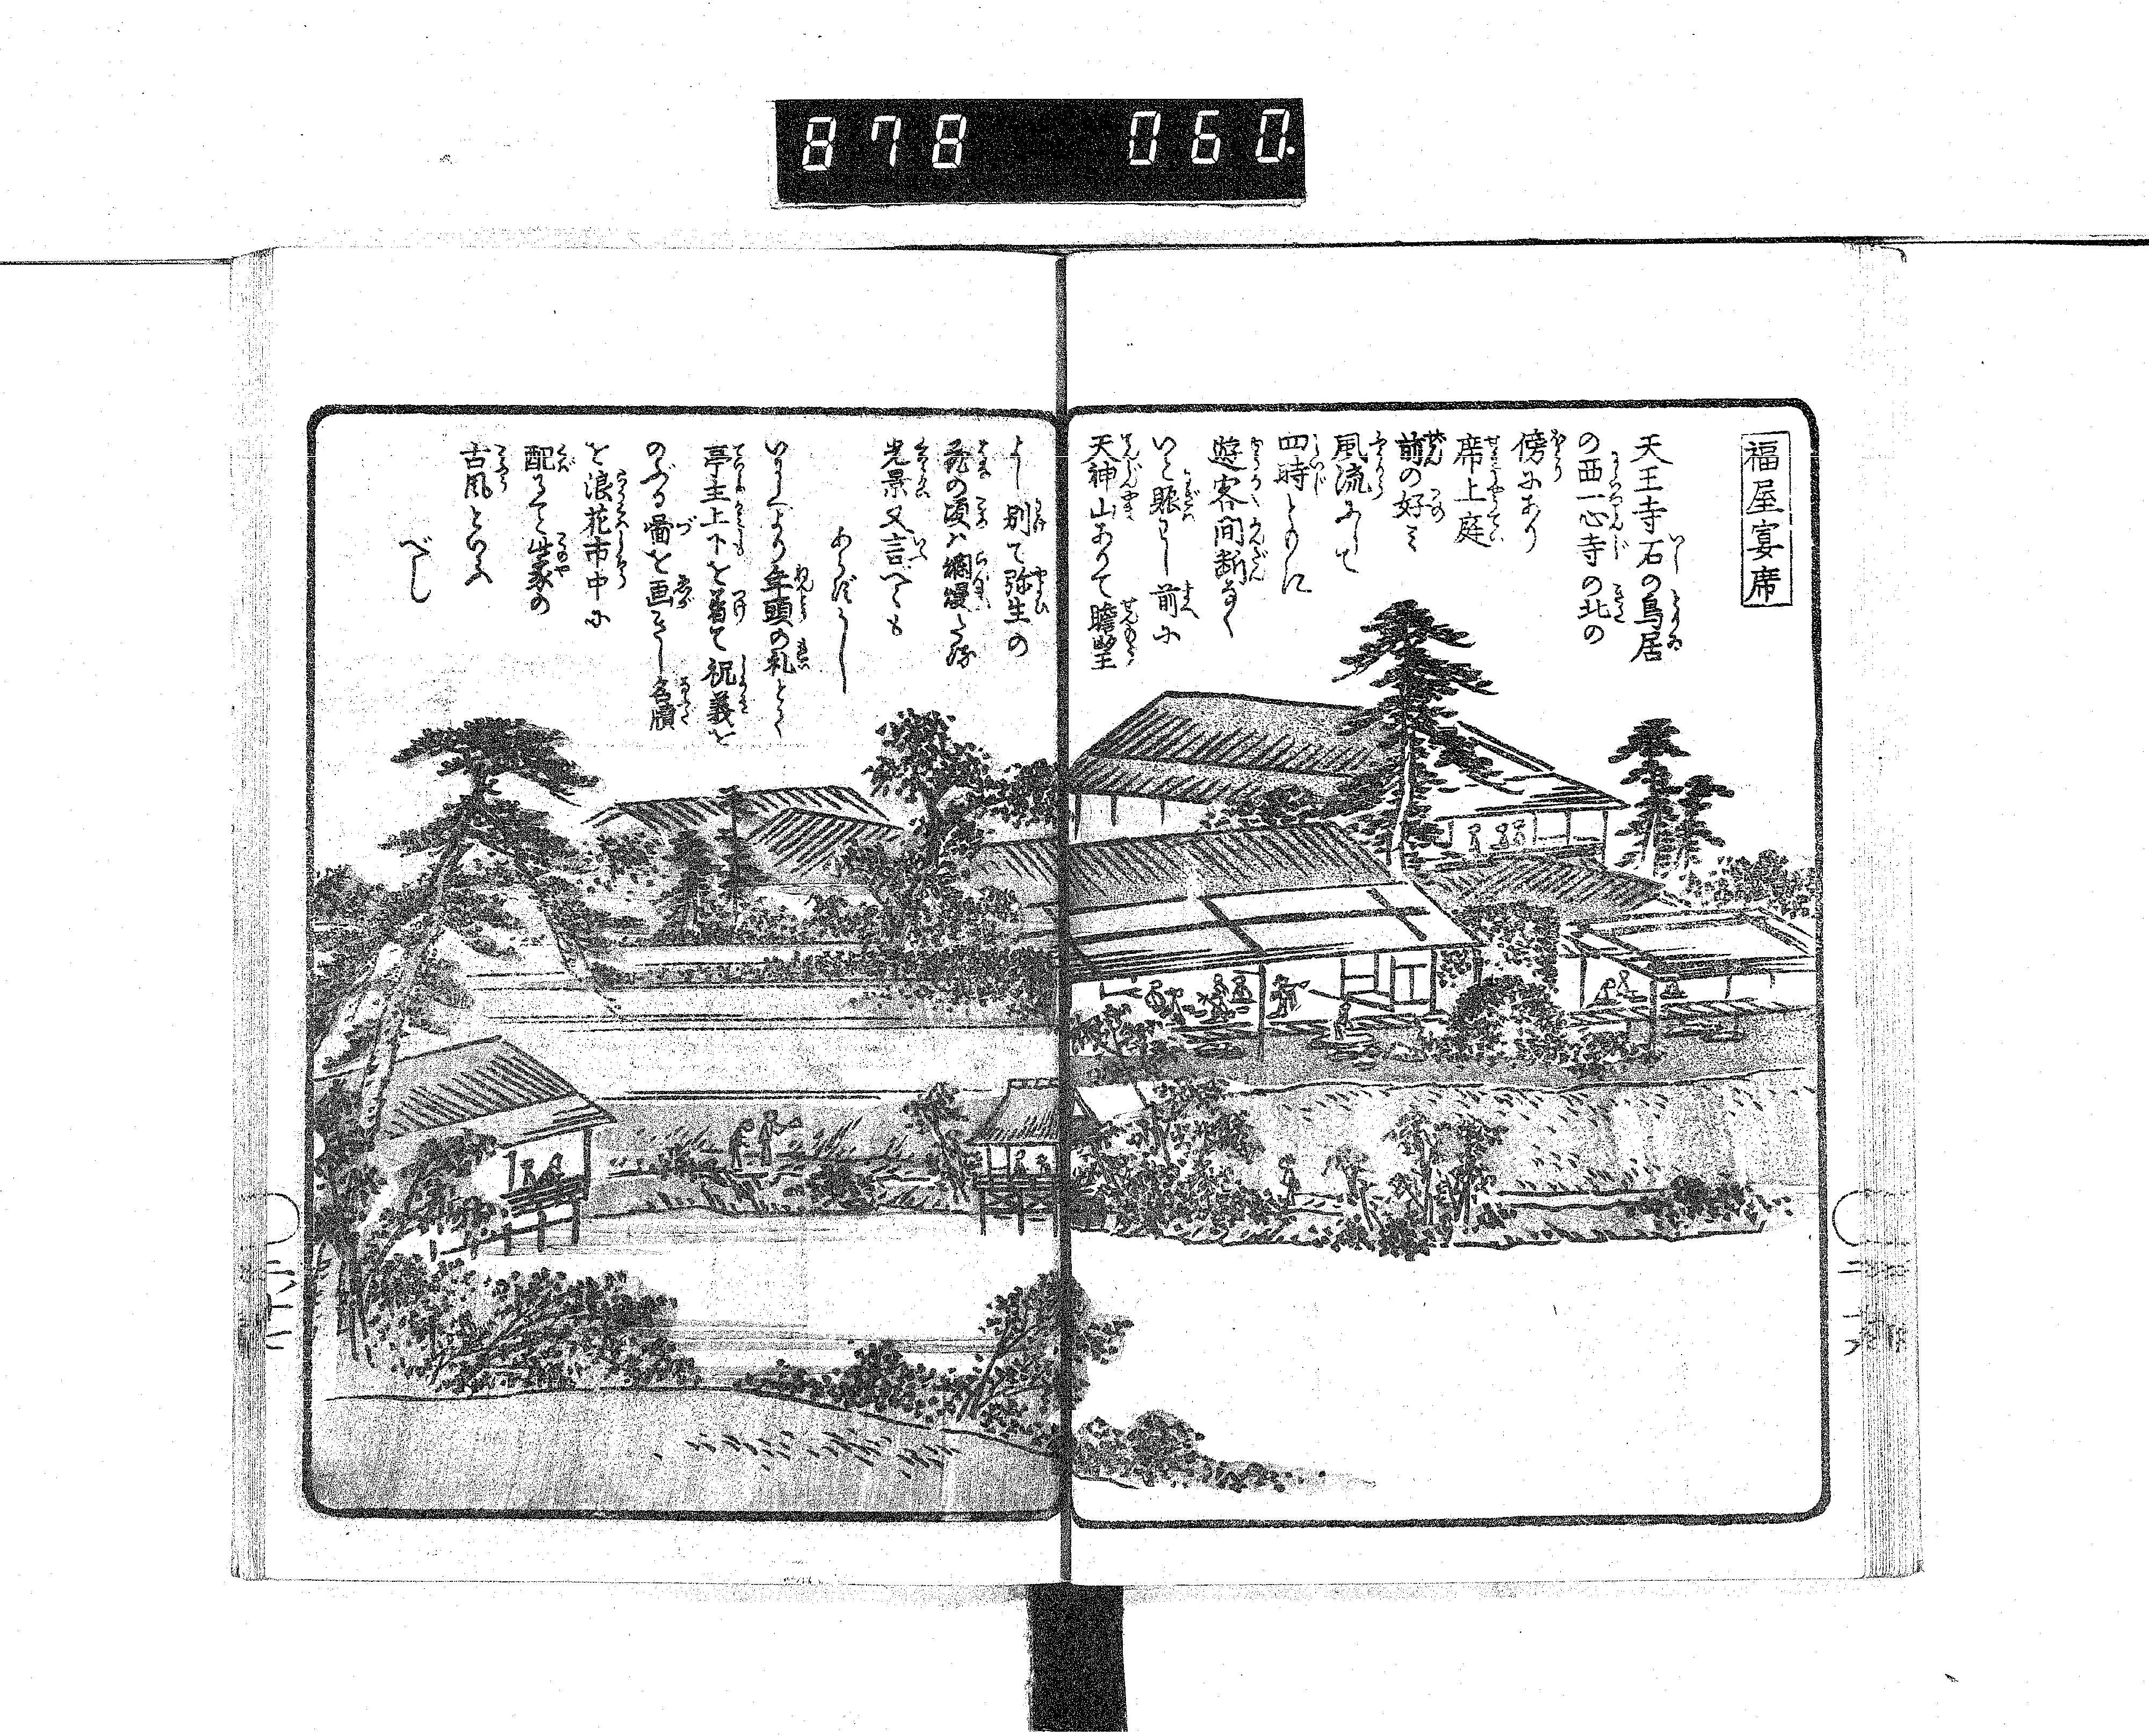 878 060.
福屋宴席
天王寺石の鳥居
の西一心寺の北の
傍にあり
席上庭
前の好ミ
風流にして
四時ともに
遊客間断なく
いと賑わし前に
天神山ありて瞻望
よし別て弥生の
花の頃ハ爛漫たる
光景又言べくも
あらずかし
いにしへより年頭の礼とて
亭主上下を着て祝義を
のぶる圖を画きし名牘
を浪花市中に
配るて此家の
古風といふ
べし